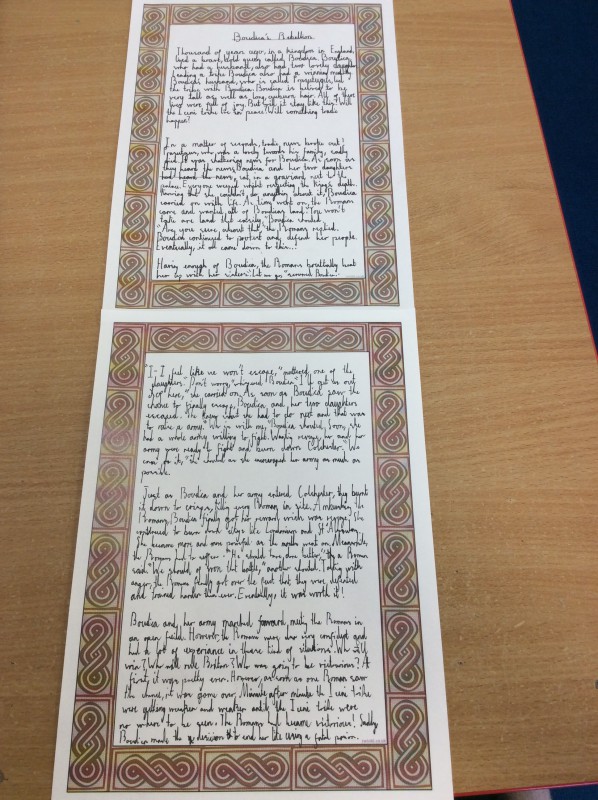 Boudica's Rebellion
Thousand of years ago, in a kingdom in England,
lived a brave, bold queen called Boudica. Boudica,
who had a husband, also had two lovely
leading a tribe Boudica also had a
Boudica's husband, who is called Prasutagus, led
the tribe with Boudica. Boudica is belived to be
very tall as well as long, auburn hair. All of there
lives were full of joy. But will it stay like this? Will
the Iceni tribe live in peace? Will something tradic
happen?
In a matter of seconds, tradic news broke out!
Prasutagus, who was a lovely towards his family, sadly
died. It was shattering news for Boudica. As soon as
they heard the news, Boudica and her two daughters
had heard the news, sat in a graviard next to the
palace. Everyone weeped whilst respecting the King's death.
Knowing that she couldn't do anything about it, Boudica
carried on with life. As time went on, the Romans
came and wanted all of Boudicas land. "You won't
take are land that easily," Boudica shouted.
"Are you sure about that," the Romans replied.
Boudica continued to protect and defend her people.
Eventually, it all came down to this...!
Having enough of Boudica, the Romans brutally beat
her up with her sisters. "Let us go," screamed Boudica.
"I-I feel like we won't escape," muttered one of the
daughters. "Don't worry," whispered Boudica. "I'll get us out
of here," she carried on. As soon as Boudica saw the
chance to finally escape, Boudica and her two daughters
escaped. She knew what she had to do next and that was
to raise a army. "Who is with me," Boudica shouted. Soon, she
had a whole army willing to fight. Wanting revenge, her and her
army were ready to fight and burn down Colchester. "We
can do its," she shouted as she encouraged her army as much as
possible.
Just as Boudica and her army entered Colchester, they burnt
it down to crisps, killing every Roman in site. Ambushing the
Romans, Boudica finally got her reward wich was revenge. She
continued to burn down citys like Londinium and St Albans.
She became more and more powerful as the battle went on. Meanwhile,
the Romans had to suffer. "We should have done better," the a Roman
said. "We should of won that battle," another shouted. Fuming with
anger, the Romans finally got over the fact that they were defeated
and trained harder than ever. Eventually, it was worth it!
Boudica and her army marched forward, meeting the Romans in
an open field. However, the Romans were very confident and
had a lot of experience in these kind of situations. Who will
win? Who will rule Britain? Who was going to be victorious? At
first, it was pretty even. However, as soon as one Roman saw
the chance, it was game over. Minute after minute the Iceni tribe
were getting weaker and weaker until the Iceni tribe were
no where to be seen. The Romans had became victorious! Sadly
Boudica made the decision to end her life using a fatal poison.